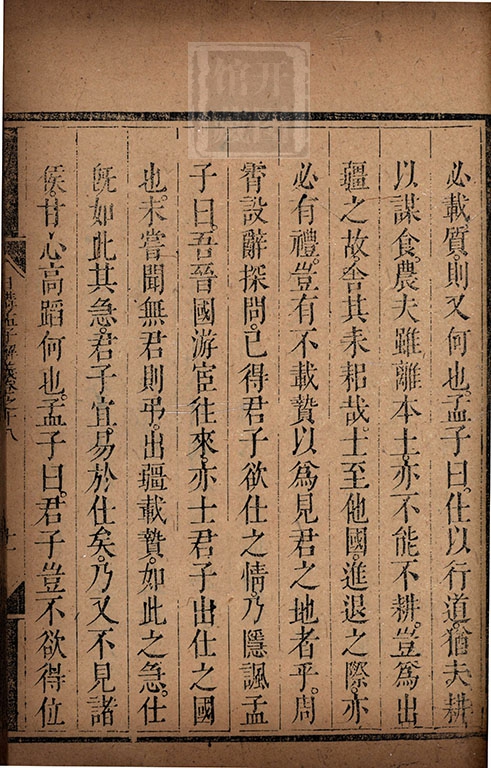 必載質則又何也孟子曰仕以行道猶夫耕
以謀食農夫雖離本土亦不能不耕豈爲出
疆之故舍其耒耜哉士至他國進退之際亦
必有禮豈有不載贄以爲見君之地者乎周
霄設辭探問已得君子欲仕之情乃隱諷孟
子曰吾晉國游宦往來亦士君子出仕之國
也未嘗聞無君則弔出疆載贄如此之急仕
旣如此其急君子宜易於仕矣乃又不見諸
侯甘心高蹈何也孟子曰君子豈不欲得位